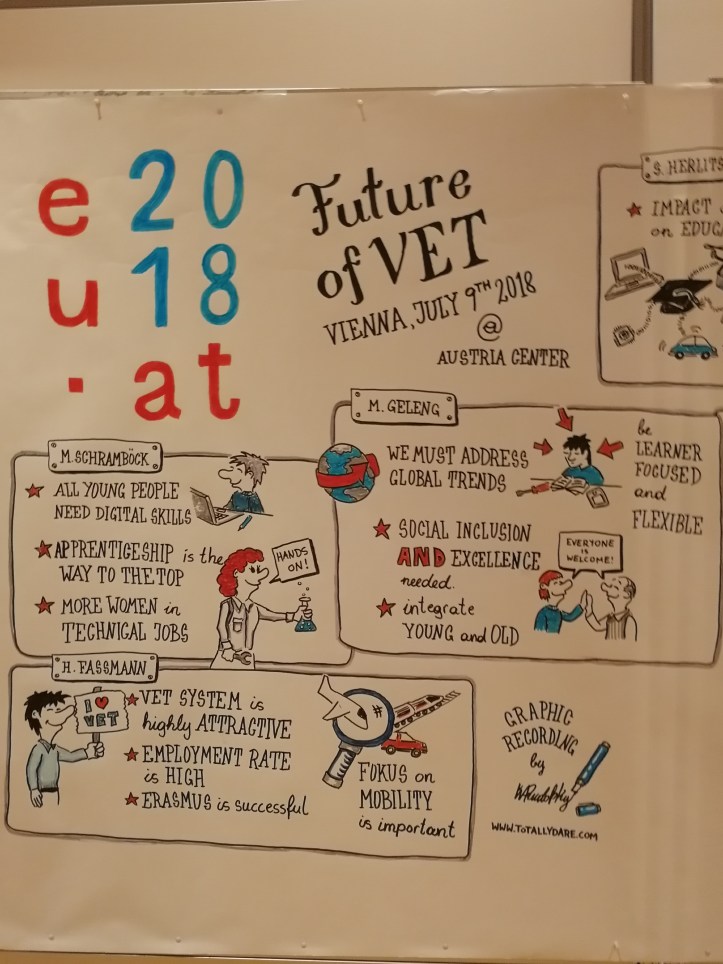 e 20
u 18
. at
Future
of VET
VIENNA, JULY 9TH 2018
@
AUSTRIA CENTER
S. HERLITS
★ IMPACT
on EDUC
M. SCHRAMBÖCK
★ ALL YOUNG PEOPLE
NEED DIGITAL SKILLS
★ APPRENTICESHIP is the
WAY TO THE TOP
★ MORE WOMEN in
TECHNICAL JOBS
HANDS
ON!
M. GELENG
WE MUST ADDRESS
GLOBAL TRENDS
★ SOCIAL INCLUSION
AND EXCELLENCE
needed.
★ integrate
YOUNG and OLD
be
LEARNER
FOCUSED
and
FLEXIBLE
EVERYONE
IS
WELCOME!
H. FASSMANN
I ♥
VET
★ VET SYSTEM is
highly ATTRACTIVE
★ EMPLOYMENT RATE
is HIGH
★ ERASMUS is successful
#
FOKUS on
MOBILITY
is important
GRAPHIC
RECORDING
by
WWW.TOTALLYDARE.COM